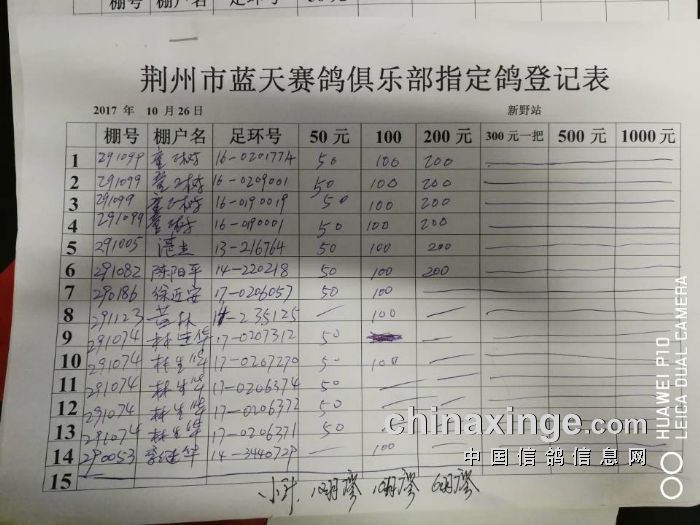 棚号 棚户名 足环号
荆州市蓝天赛鸽俱乐部指定鸽登记表
2017 年 10 月 26 日 新野站
棚号 棚户名 足环号 50 元 100 200 元 300 元一把 500 元 1000 元
1 291099 16-0201774 50 100 200
2 291099 16-0209001 50 100 200
3 291099 16-0190019 50 100 200
4 291099 16-0190001 50 100 200
5 291005 13-216764 50 100 200
6 291082 陈阳平 14-220218 50 100 200
7 290186 徐近安 17-0206057 50 100
8 291123 235125 — 100
9 291074 林生华 17-0207312 50
10 291074 林生华 17-0207270 50 100
11 291074 林生华 17-0206374 50
12 291074 林生华 17-0206372 50
13 291074 林生华 17-0206371 50
14 290053 14-3440729 — 100
15
小计
chinaxinge.com
中国信鸽信息网
HUAWEI P10
LEICA DUAL CAMERA